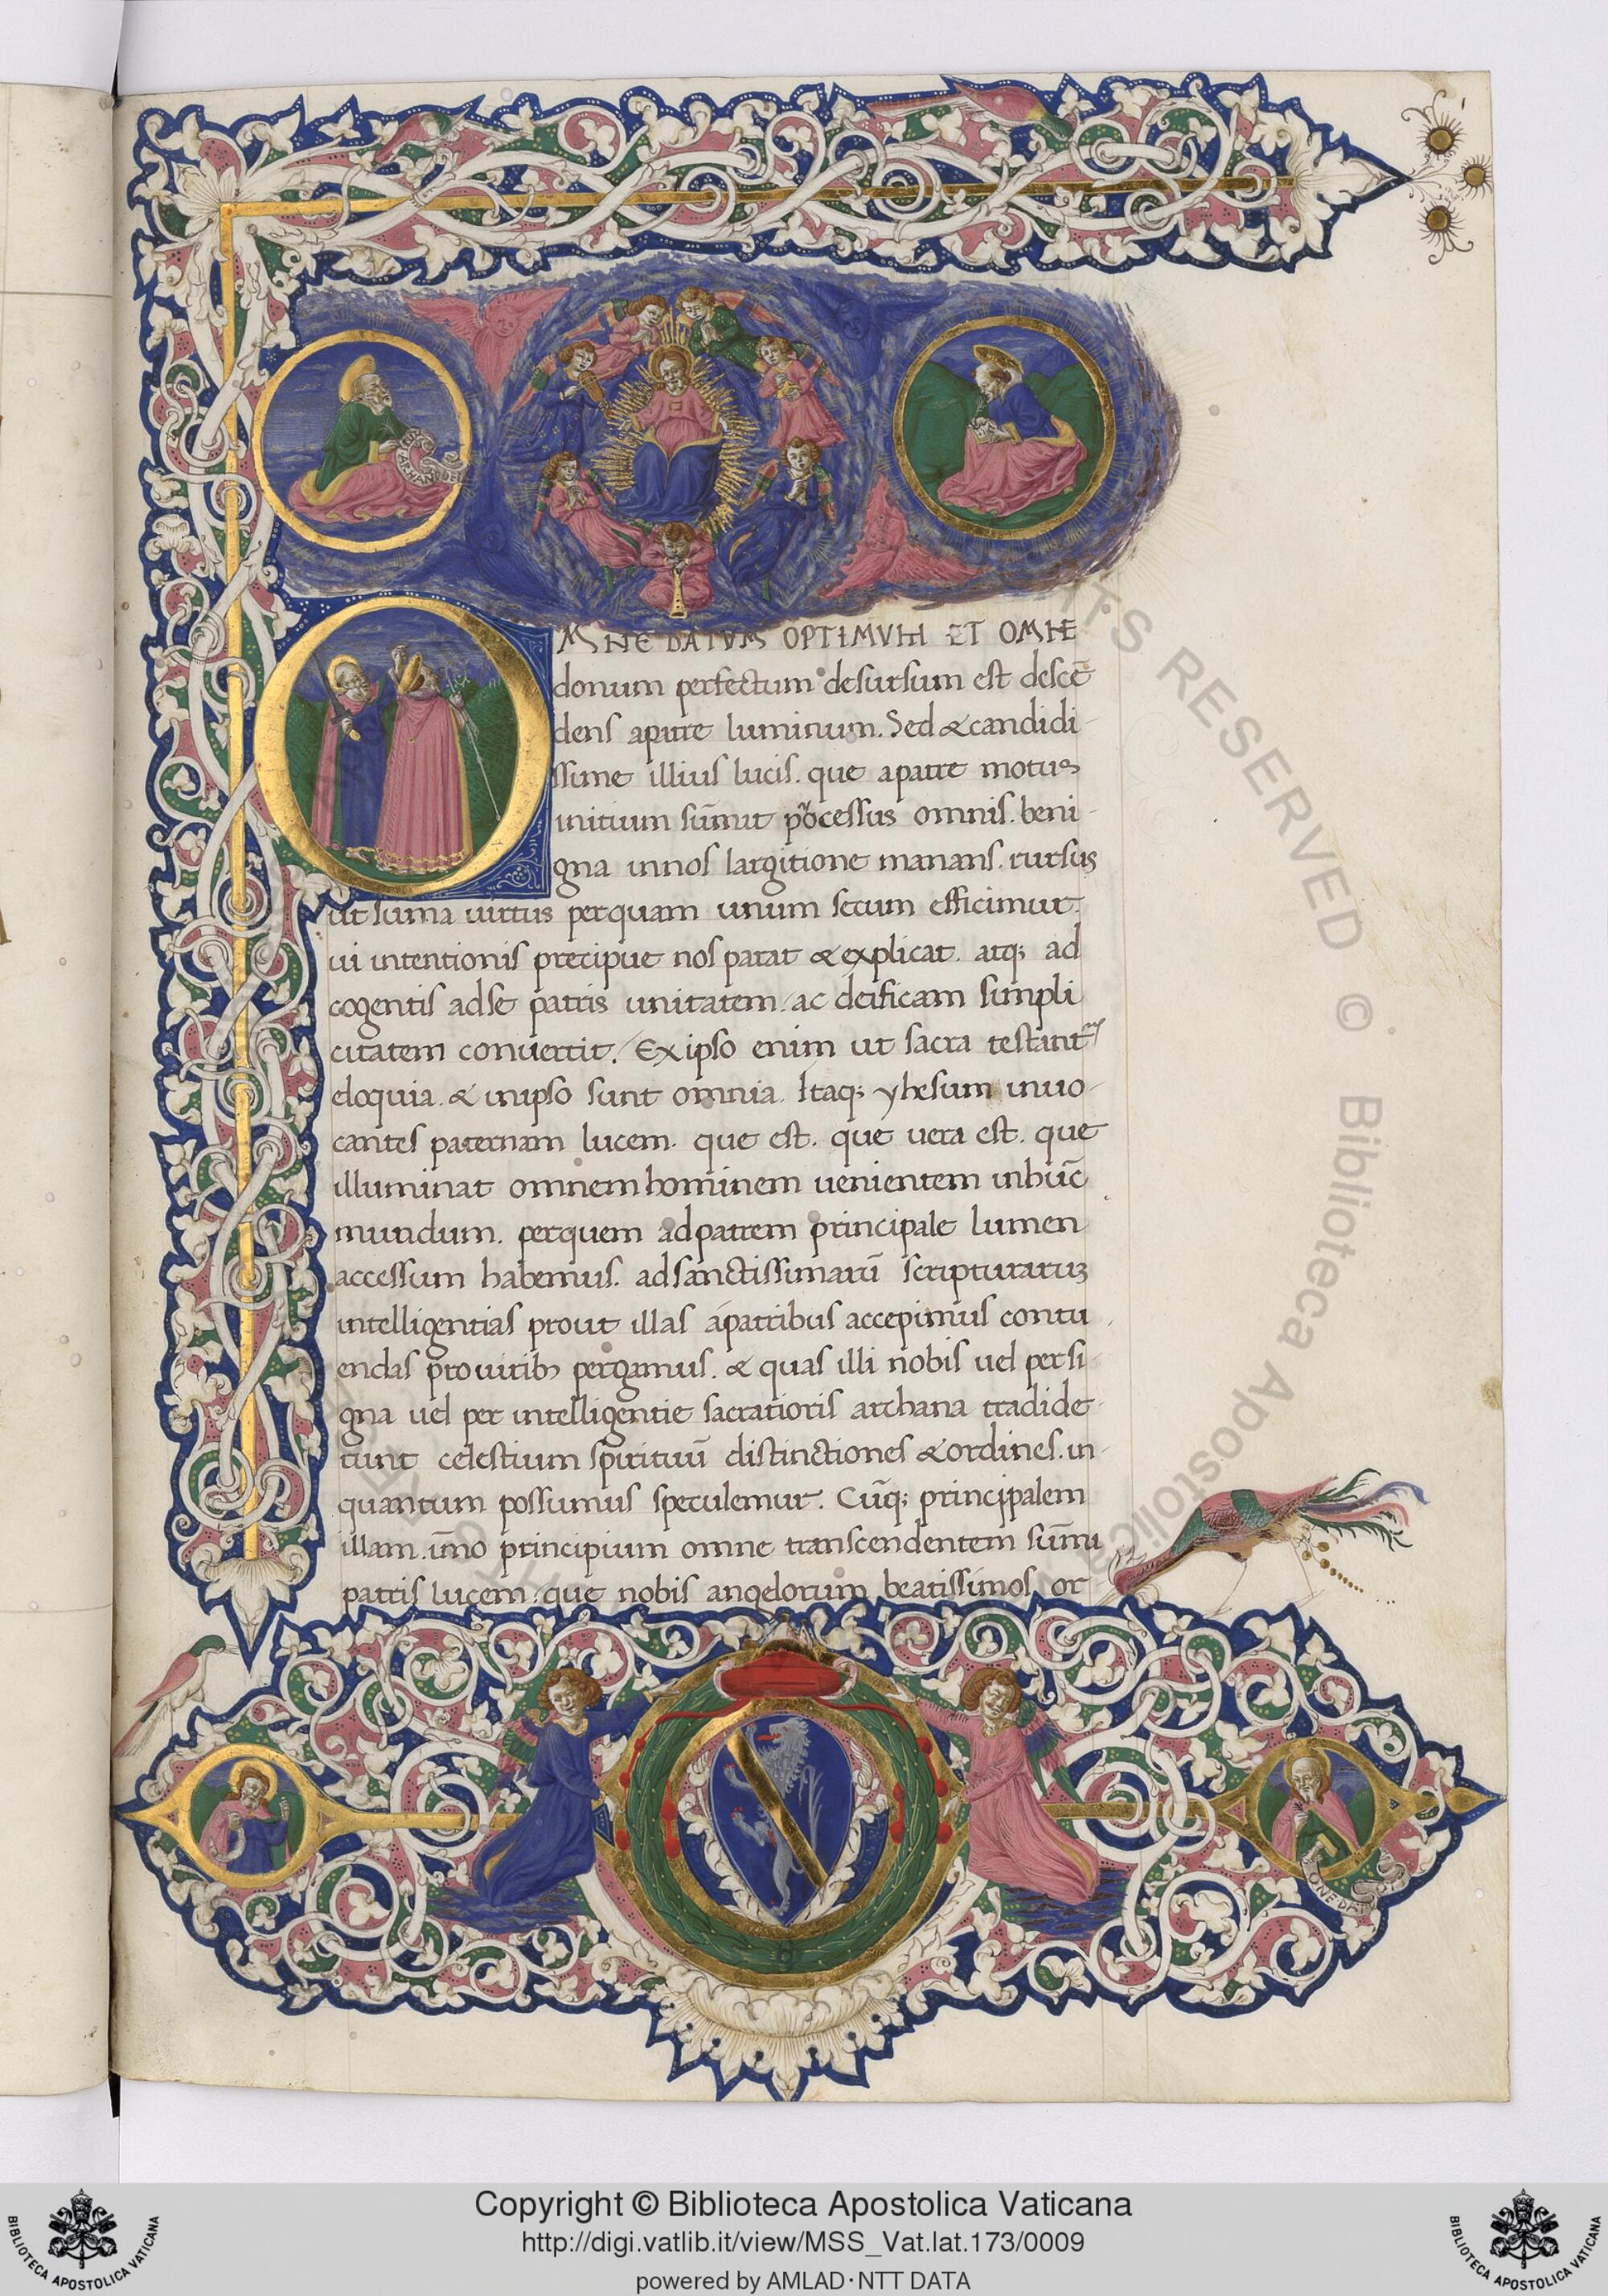 OMNE DATVM OPTIMVM ET OMNE
donum perfectum desursum est descē
dens apatre luminum. Sed & candidi-
ssime illius lucis. que apatre motus
initium sūmit processus omnis. beni-
gna innos largitione manans. rursus
ut suma uirtus perquam unum secum efficimur.
ui intentionis precipue nos parat & explicat. atq; ad
cogentis adse patris unitatem. ac deificam simpli
citatem conuertit. Ex ipso enim ut sacra testant᷑
eloquia. & inipso sunt omnia. Itaq; yhesum inuo-
cantes paternam lucem. que est. que uera est. que
illuminat omnem hominem uenientem inhūc
mundum. perquem adpatrem principale lumen
accessum habemus. adsanctissimarū scripturaruꝫ
intelligentias prout illas apatribus accepimus contu
endas prouiribꝫ pergamus. & quas illi nobis uel persi-
gna uel per intelligentie sacratioris archana tradide-
runt celestium spirituū distinctiones & ordines. in-
quantum possumus speculemur. Cūq; principalem
illam. īmo principium omne transcendentem sūmi
patris lucem. que nobis angelorum beatissimos or
RIGHTS RESERVED © Biblioteca Apostolica
Copyright © Biblioteca Apostolica Vaticana
http://digi.vatlib.it/view/MSS_Vat.lat.173/0009
powered by AMLAD·NTT DATA
BIBLIOTECA APOSTOLICA VATICANA
BIBLIOTECA APOSTOLICA VATICANA